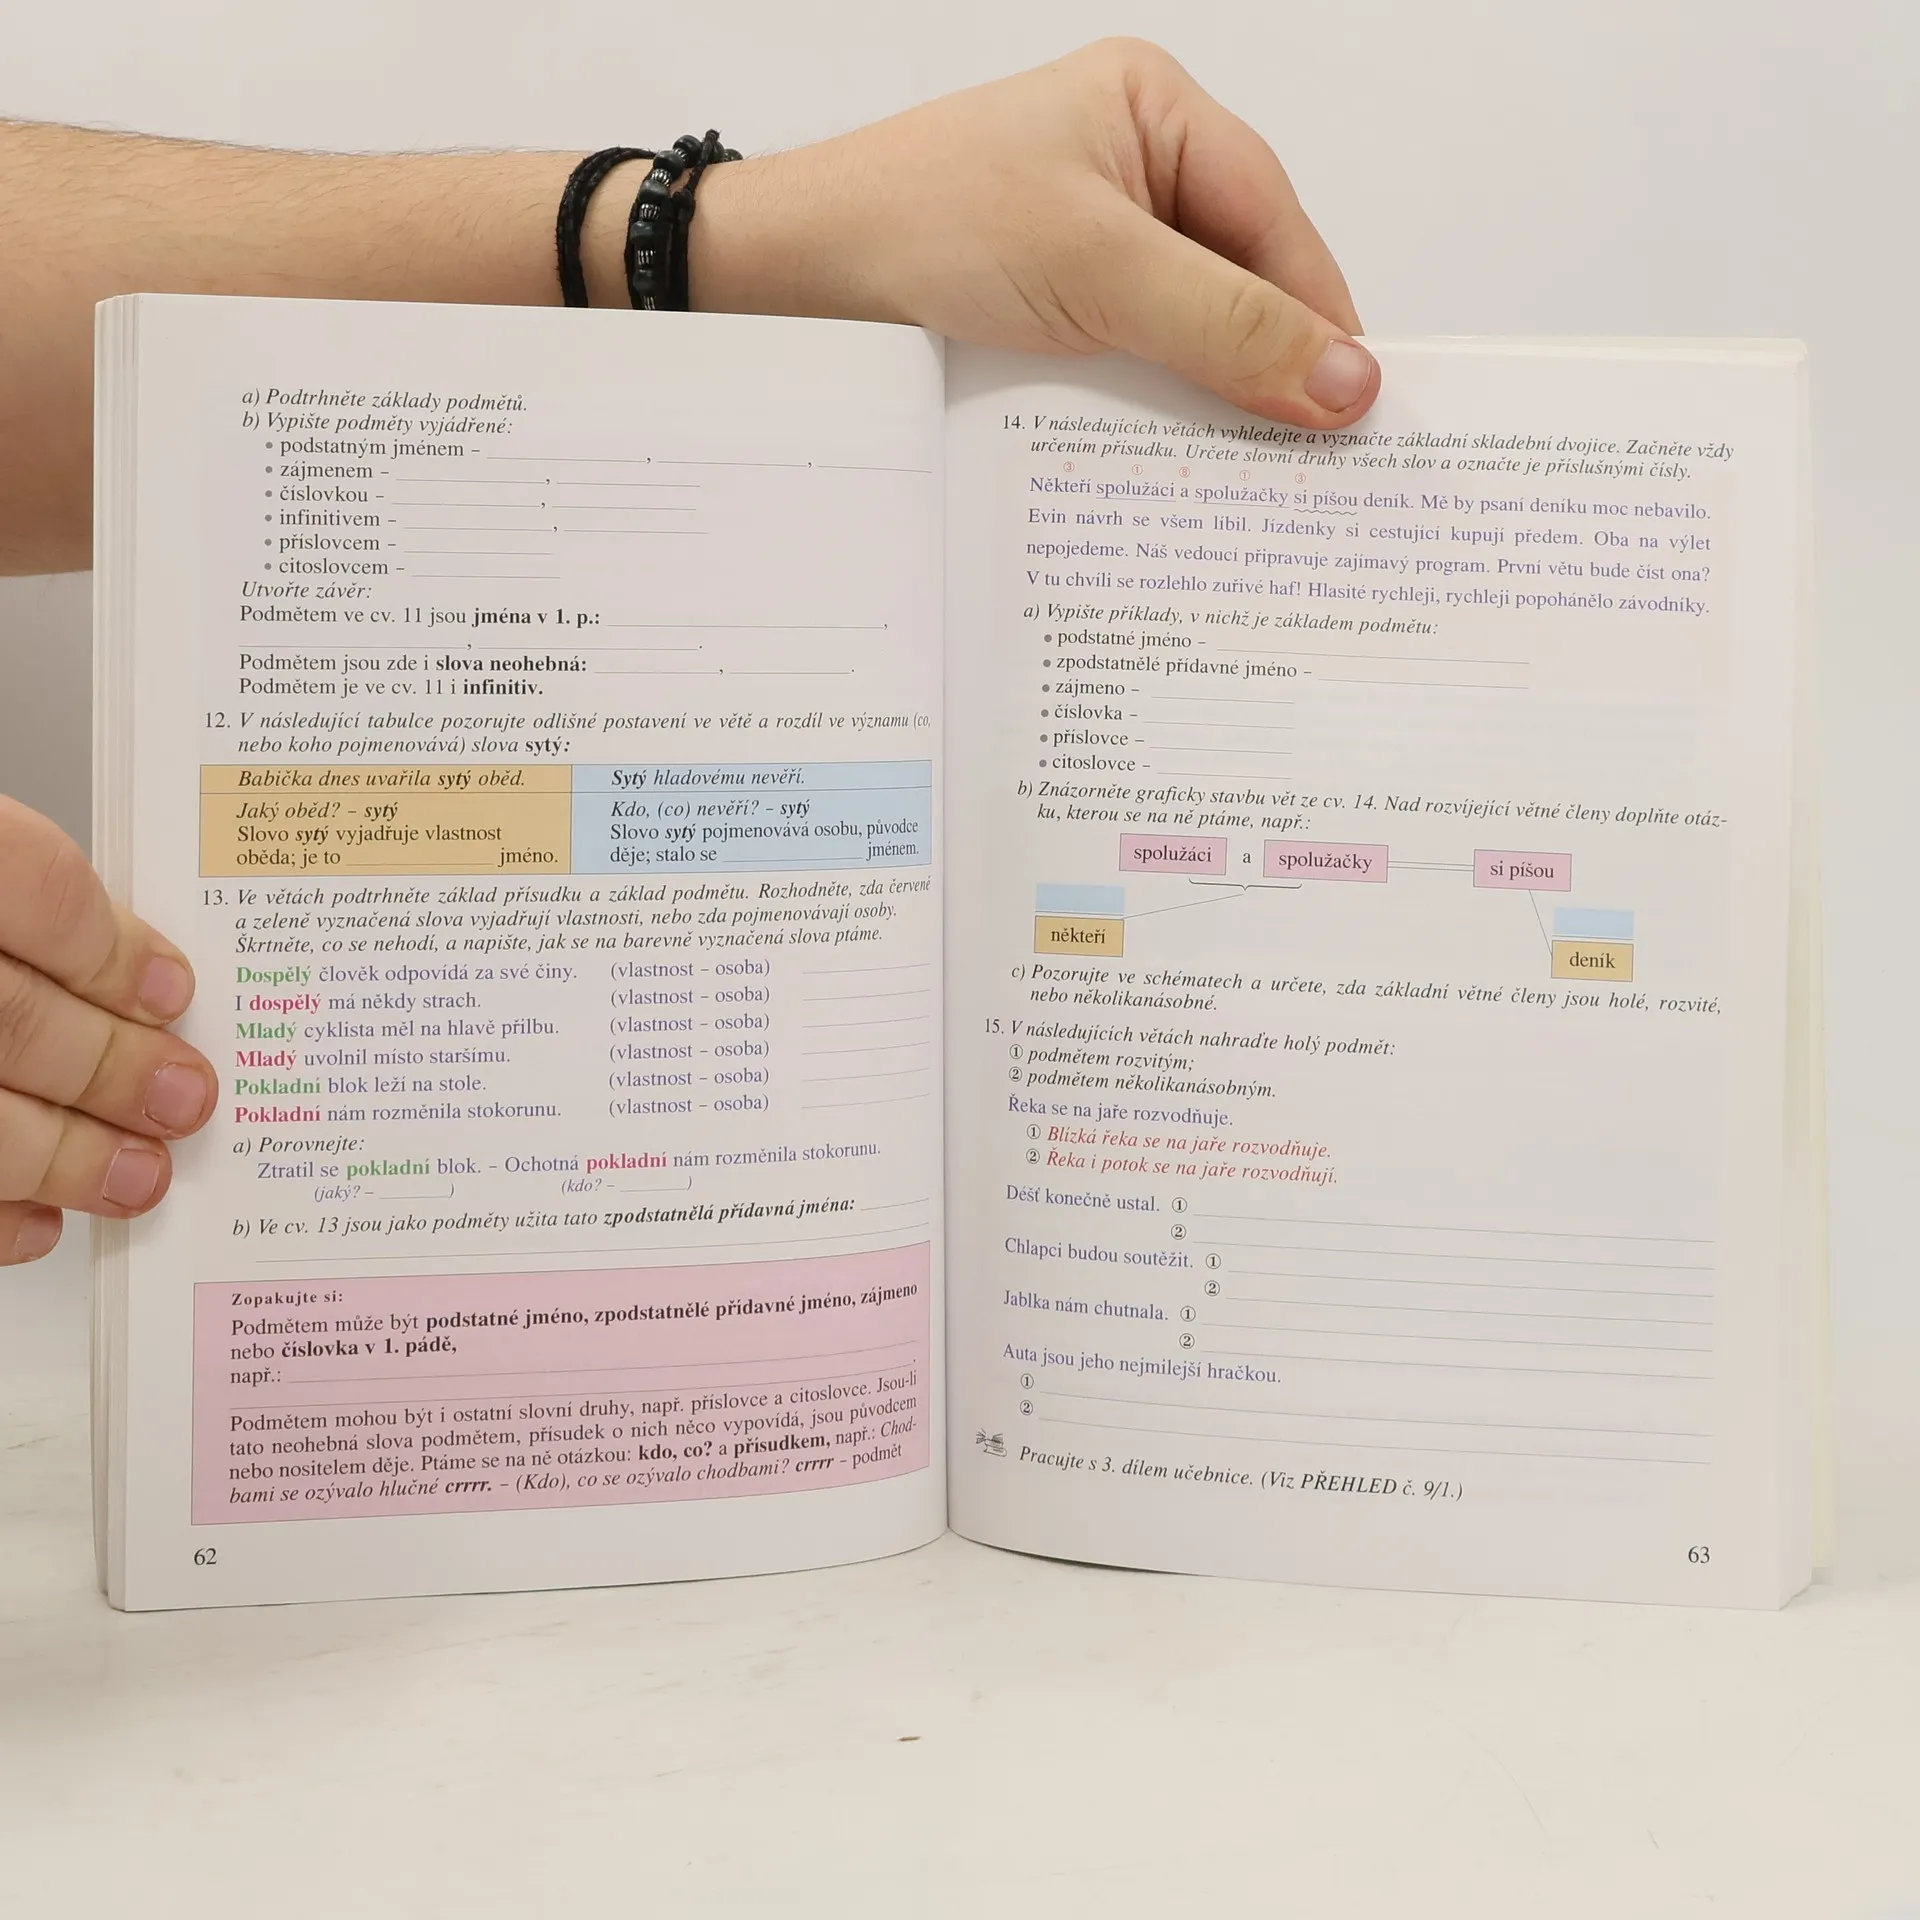 a) Podtrhněte základy podmětů.
b) Vypište podměty vyjádřené:
• podstatným jménem – , ,
• zájmenem – ,
• číslovkou – ,
• infinitivem – ,
• příslovcem –
• citoslovcem –
Utvořte závěr:
Podmětem ve cv. 11 jsou jména v 1. p.: ,
, .
Podmětem jsou zde i slova neohebná: , .
Podmětem je ve cv. 11 i infinitiv.
12. V následující tabulce pozorujte odlišné postavení ve větě a rozdíl ve významu (co,
nebo koho pojmenovává) slova sytý:
Babička dnes uvařila sytý oběd.
Jaký oběd? – sytý
Slovo sytý vyjadřuje vlastnost
oběda; je to jméno.
Sytý hladovému nevěří.
Kdo, (co) nevěří? – sytý
Slovo sytý pojmenovává osobu, původce
děje; stalo se jménem.
13. Ve větách podtrhněte základ přísudku a základ podmětu. Rozhodněte, zda červeně
a zeleně vyznačená slova vyjadřují vlastnosti, nebo zda pojmenovávají osoby.
Škrtněte, co se nehodí, a napište, jak se na barevně vyznačená slova ptáme.
Dospělý člověk odpovídá za své činy. (vlastnost – osoba)
I dospělý má někdy strach. (vlastnost – osoba)
Mladý cyklista měl na hlavě přilbu. (vlastnost – osoba)
Mladý uvolnil místo staršímu. (vlastnost – osoba)
Pokladní blok leží na stole. (vlastnost – osoba)
Pokladní nám rozměnila stokorunu. (vlastnost – osoba)
a) Porovnejte:
Ztratil se pokladní blok. – Ochotná pokladní nám rozměnila stokorunu.
(jaký? – ) (kdo? – )
b) Ve cv. 13 jsou jako podměty užita tato zpodstatnělá přídavná jména:
Zopakujte si:
Podmětem může být podstatné jméno, zpodstatnělé přídavné jméno, zájmeno
nebo číslovka v 1. pádě,
např.:
.
Podmětem mohou být i ostatní slovní druhy, např. příslovce a citoslovce. Jsou-li
tato neohebná slova podmětem, přísudek o nich něco vypovídá, jsou původcem
nebo nositelem děje. Ptáme se na ně otázkou: kdo, co? a přísudkem, např.: Chod-
bami se ozývalo hlučné crrrr. – (Kdo), co se ozývalo chodbami? crrrr – podmět
62
14. V následujících větách vyhledejte a vyznačte základní skladební dvojice. Začněte vždy
určením přísudku. Určete slovní druhy všech slov a označte je příslušnými čísly.
③ ① ⑧ ① ③
Někteří spolužáci a spolužačky si píšou deník. Mě by psaní deníku moc nebavilo.
Evin návrh se všem líbil. Jízdenky si cestující kupují předem. Oba na výlet
nepojedeme. Náš vedoucí připravuje zajímavý program. První větu bude číst ona?
V tu chvíli se rozlehlo zuřivé haf! Hlasité rychleji, rychleji popohánělo závodníky.
a) Vypište příklady, v nichž je základem podmětu:
• podstatné jméno –
• zpodstatnělé přídavné jméno –
• zájmeno –
• číslovka –
• příslovce –
• citoslovce –
b) Znázorněte graficky stavbu vět ze cv. 14. Nad rozvíjející větné členy doplňte otáz-
ku, kterou se na ně ptáme, např.:
spolužáci a spolužačky si píšou
někteří deník
c) Pozorujte ve schématech a určete, zda základní větné členy jsou holé, rozvité,
nebo několikanásobné.
15. V následujících větách nahraďte holý podmět:
① podmětem rozvitým;
② podmětem několikanásobným.
Řeka se na jaře rozvodňuje.
① Blízká řeka se na jaře rozvodňuje.
② Řeka i potok se na jaře rozvodňují.
Déšť konečně ustal. ①
②
Chlapci budou soutěžit. ①
②
Jablka nám chutnala. ①
②
Auta jsou jeho nejmilejší hračkou.
①
②
Pracujte s 3. dílem učebnice. (Viz PŘEHLED č. 9/1.)
63